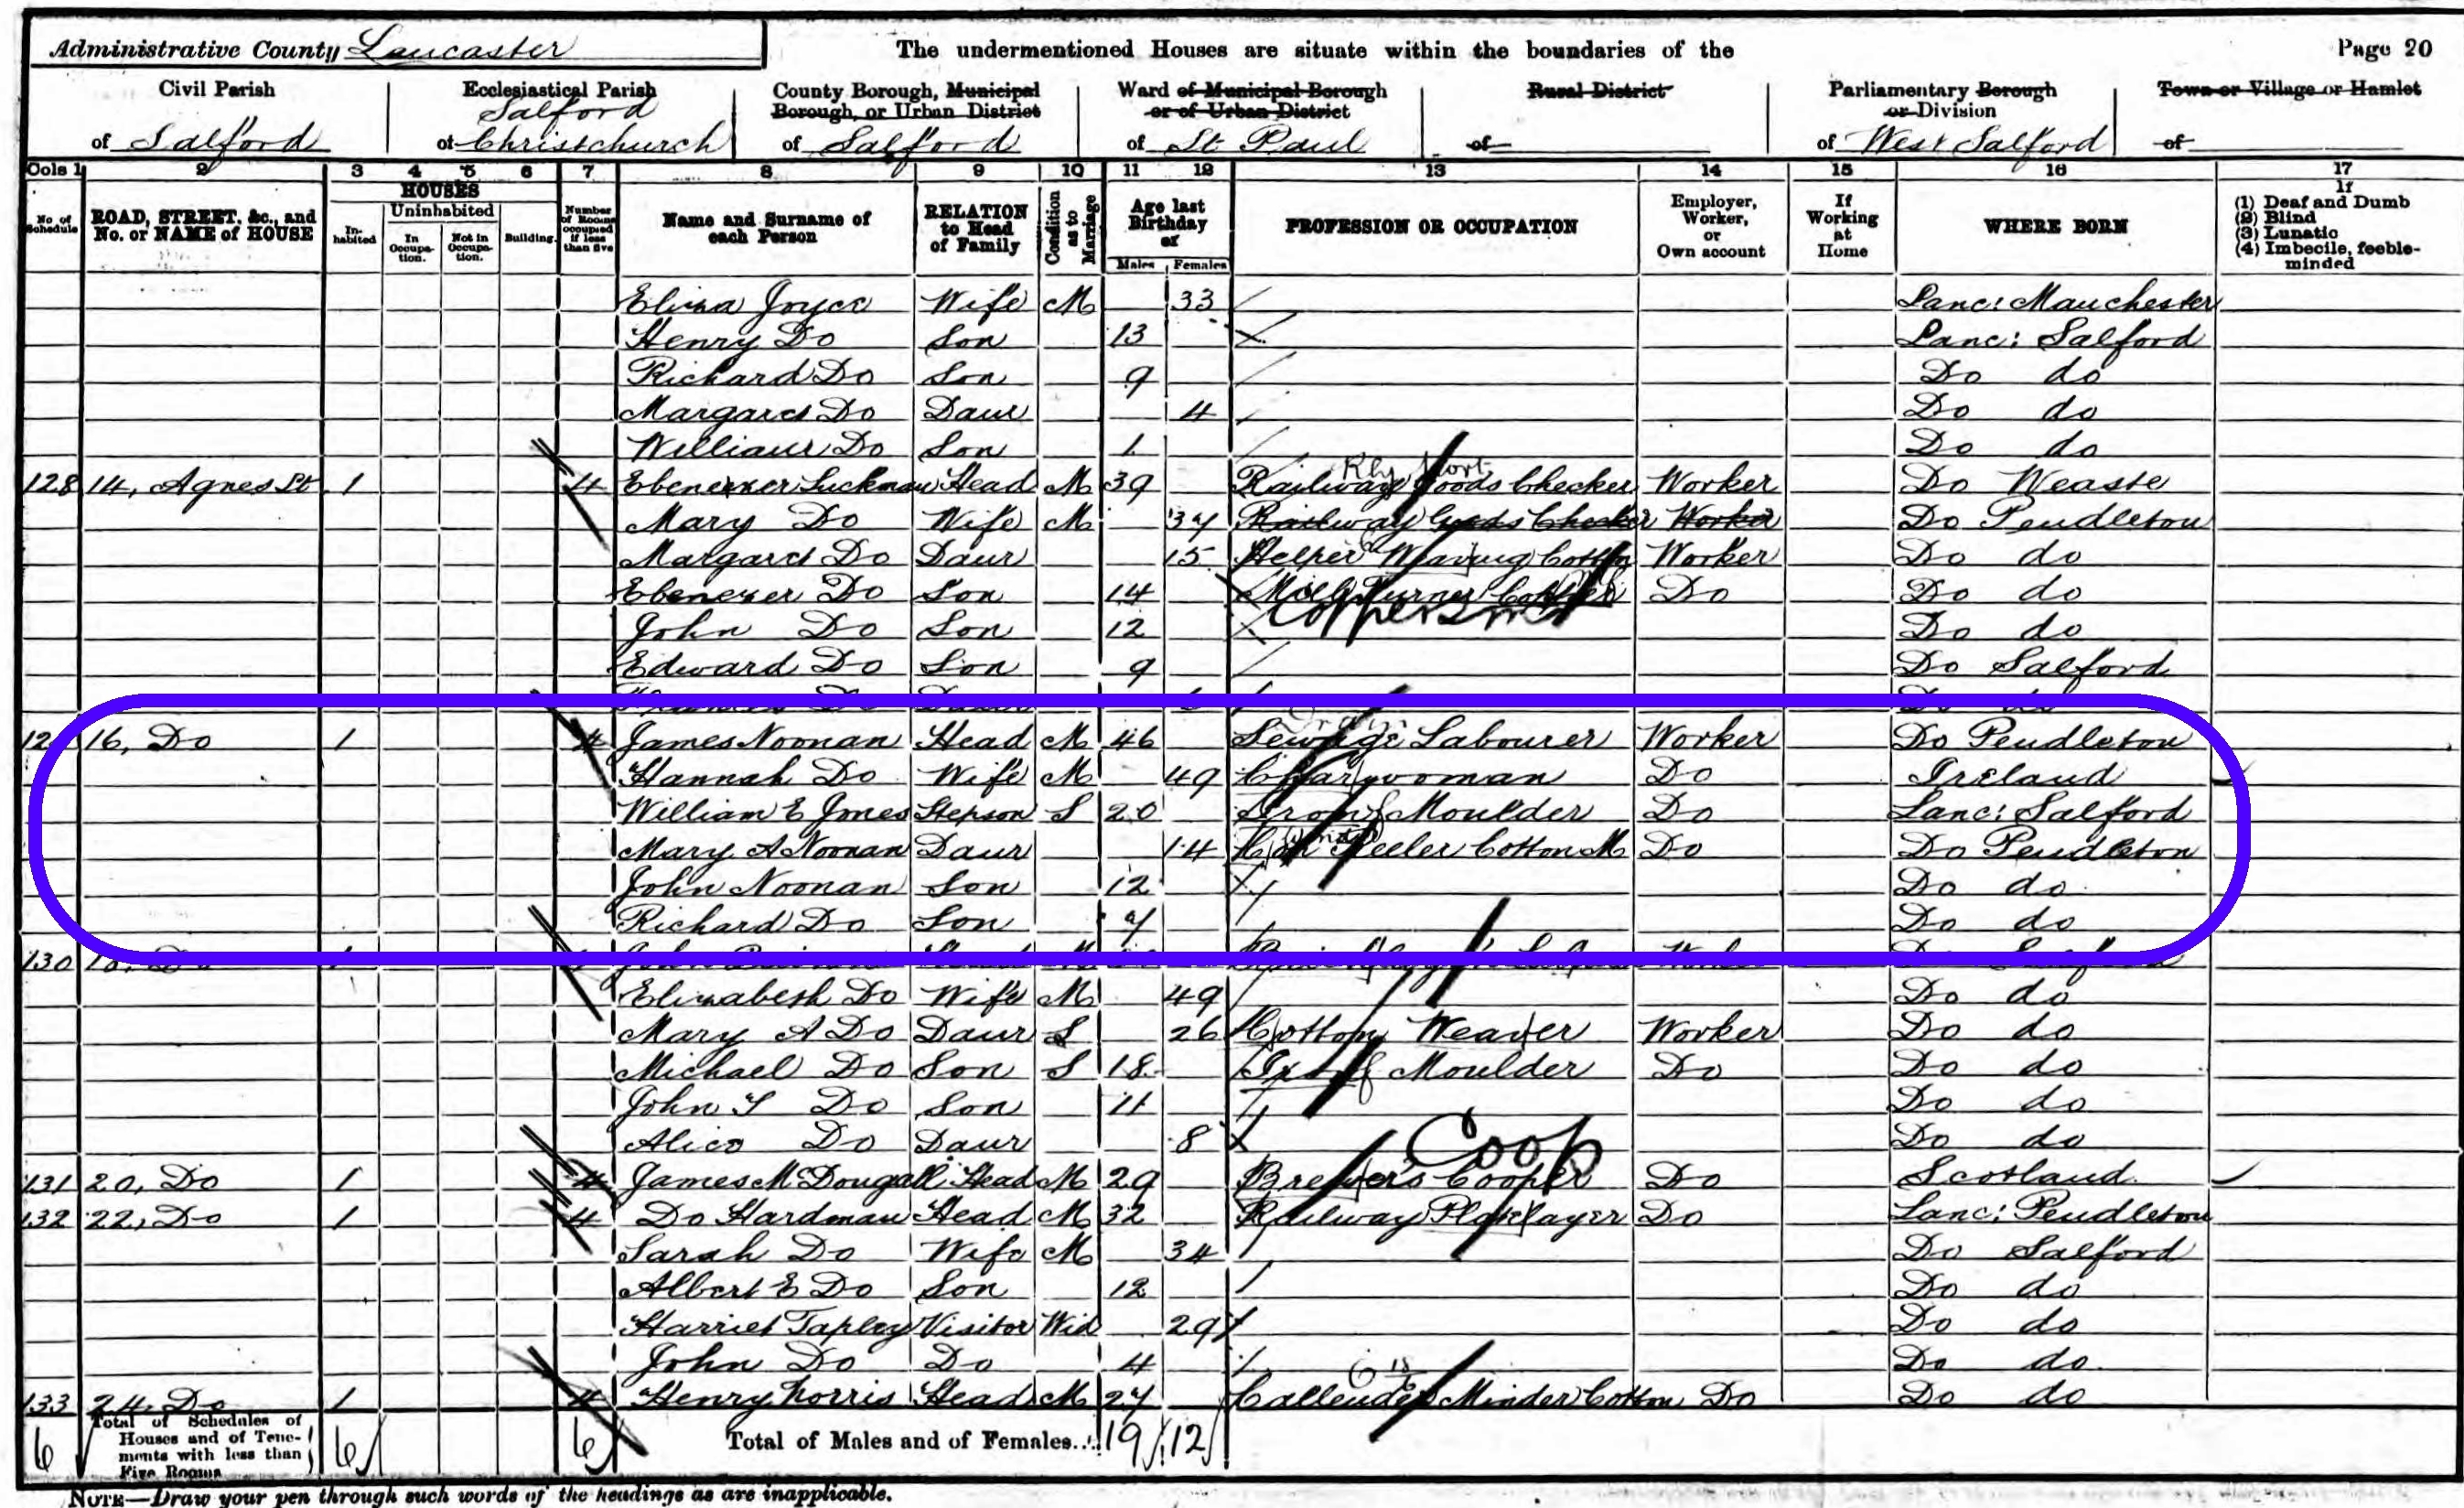 Administrative County Lancaster
The undermentioned Houses are situate within the boundaries of the
Page 20
Civil Parish of Salford
Ecclesiastical Parish of Salford Christchurch
County Borough, Municipal Borough, or Urban District of Salford
Ward of Municipal Borough or of Urban District of St Paul
Rural District of
Parliamentary Borough or Division of West Salford
Town or Village or Hamlet of
Cols 1 2 3 4 5 6 7 8 9 10 11 12 13 14 15 16 17
No. of Schedule
ROAD, STREET, &c., and No. or NAME of HOUSE
HOUSES
Inhabited
Uninhabited
In Occupation.
Not in Occupation.
Building.
Number of Rooms occupied if less than five
Name and Surname of each Person
RELATION to Head of Family
Condition as to Marriage
Age last Birthday of
Males Females
PROFESSION OR OCCUPATION
Employer, Worker, or Own account
If Working at Home
WHERE BORN
If
(1) Deaf and Dumb
(2) Blind
(3) Lunatic
(4) Imbecile, feeble-minded
Eliza Joyce Wife M 33 Lanc: Manchester
Henry Do Son 13 Lanc: Salford
Richard Do Son 9 Do do
Margaret Do Daur 4 Do do
William Do Son 1 Do do
128 14, Agnes St 1 4 Ebenezer Luckman Head M 39 Railway Goods Checker Worker Do Weaste
Mary Do Wife M 37 Railway Goods Checker Worker Do Pendleton
Margaret Do Daur 15 Helper Weaving Cotton Worker Do do
Ebenezer Do Son 14 Turner Do Do do
Coppersmith
John Do Son 12 Do do
Edward Do Son 9 Do Salford
16, Do 1 4 James Noonan Head M 46 Sewage Labourer Worker Do Pendleton
Hannah Do Wife M 49 Charwoman Do Ireland
William E Jones Stepson S 20 Iron Moulder Do Lanc: Salford
Mary A Noonan Daur 14 Reeler Cotton M Do Do Pendleton
John Noonan Son 12 Do do
Richard Do Son 7 Do do
130 18, Do 1
Elizabeth Do Wife M 49 Do do
Mary A Do Daur S 26 Cotton Weaver Worker Do do
Michael Do Son S 18 Iron Moulder Do Do do
John S Do Son 11 Do do
Alice Do Daur 8 Do do
Coop
131 20, Do 1 4 James McDougall Head M 29 Brewer's Cooper Do Scotland
132 22, Do 1 4 Do Hardman Head M 32 Railway Platelayer Do Lanc: Pendleton
Sarah Do Wife M 34 Do Salford
Albert E Do Son 12 Do do
Harriet Tapley Visitor Wid 29 Do do
John Do Do 4 Do do
133 24, Do 1 4 Henry Norris Head M 27 Minder Cotton Do Do do
Total of Schedules of Houses and of Tenements with less than Five Rooms
6 6 6
Total of Males and of Females... 19 12
NOTE—Draw your pen through such words of the headings as are inapplicable.